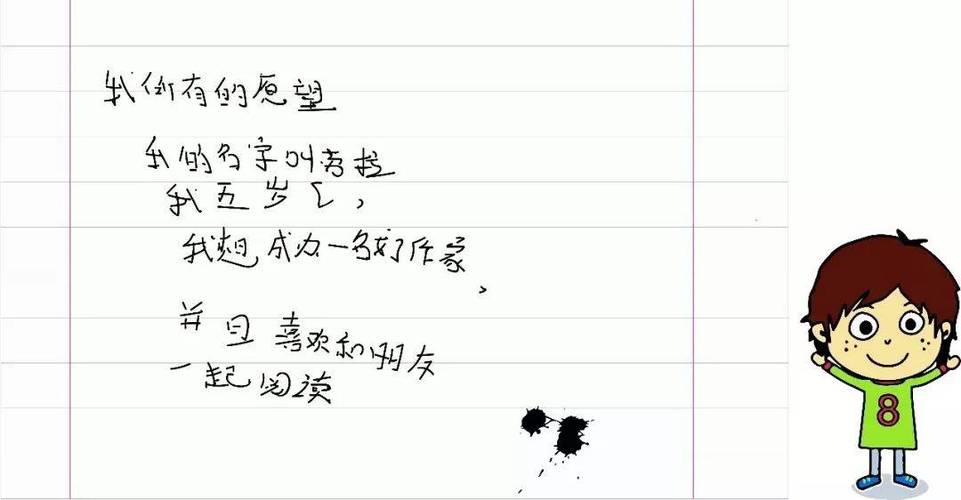 我所有的愿望
我的名字叫考拉
我五岁了，
我想成为一名好作家，
并且喜欢和朋友
一起阅读
8